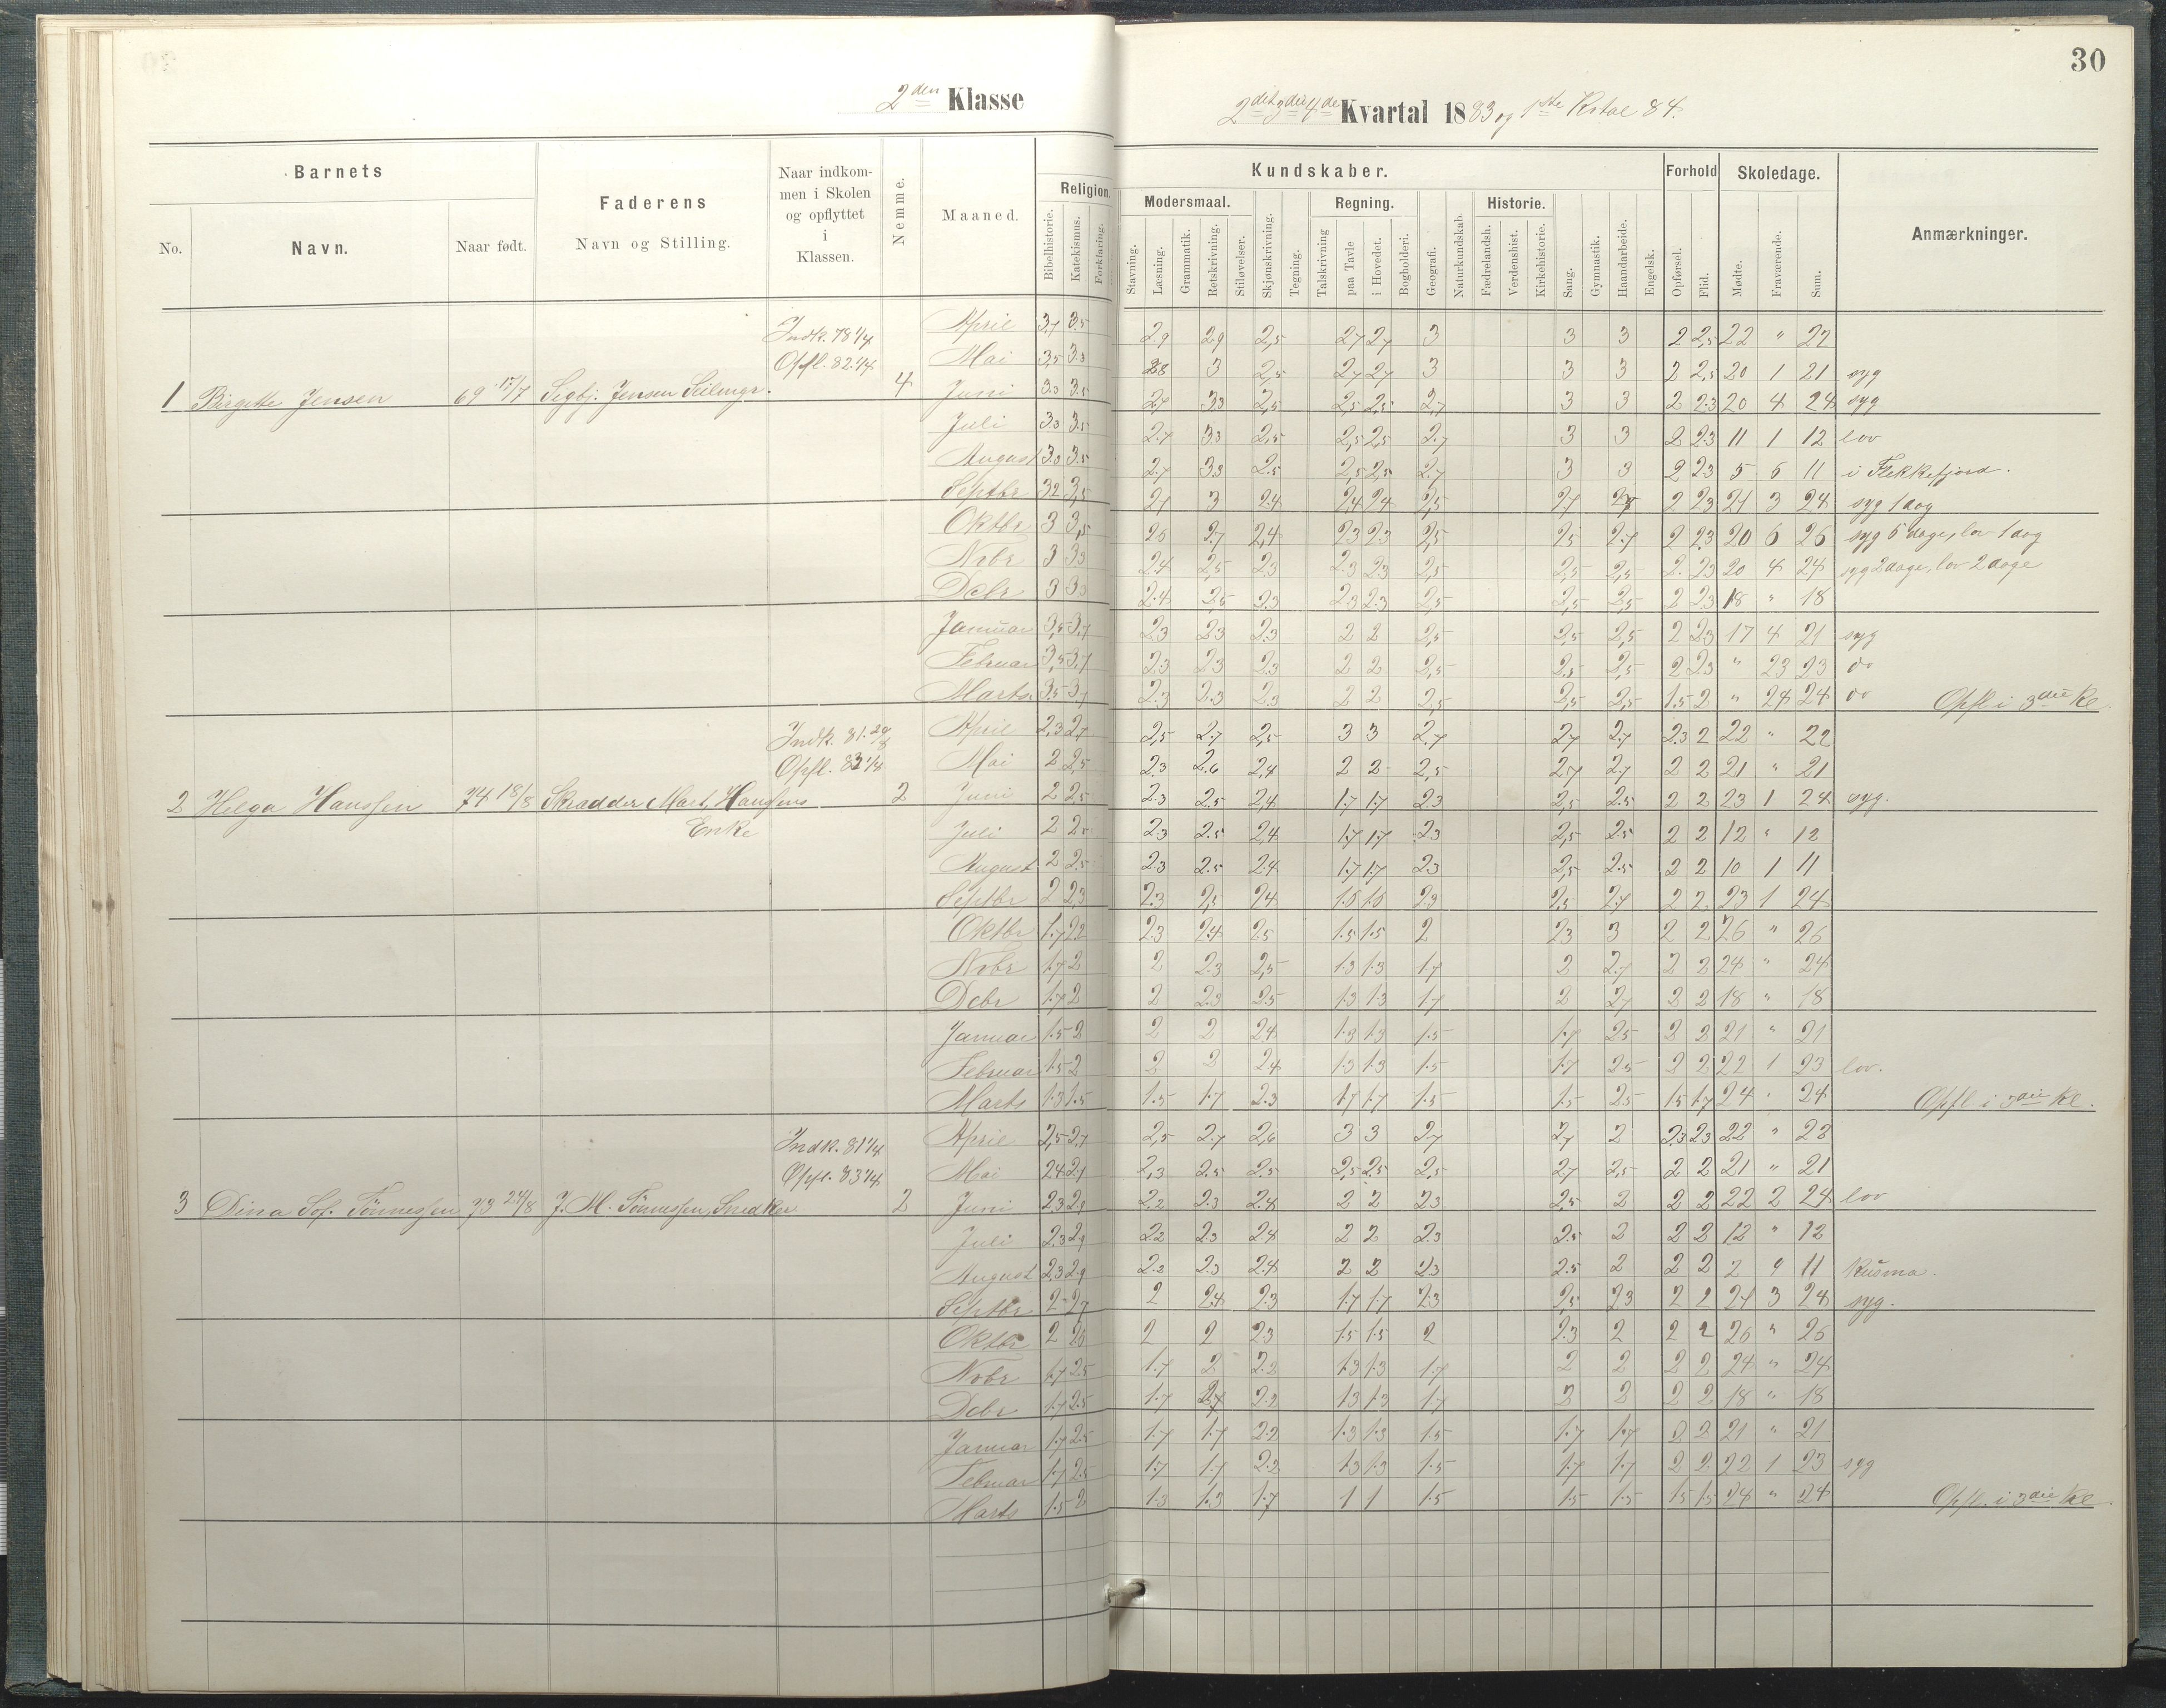 30
2den Klasse
2det 3die 4de Kvartal 1883 og 1ste Kvtal 84.
Barnets
No.
Navn.
Naar født.
Faderens
Navn og Stilling.
Naar indkom-
men i Skolen
og opflyttet
i
Klassen.
Nemme.
Maaned.
Kundskaber.
Religion.
Bibelhistorie.
Katekismus.
Forklaring.
Modersmaal.
Stavning.
Læsning.
Grammatik.
Retskrivning.
Stiløvelser.
Skjønskrivning.
Tegning.
Regning.
Talskrivning
paa Tavle
i Hovedet.
Bogholderi.
Geografi.
Naturkundskab.
Historie.
Fædrelandsh.
Verdenshist.
Kirkehistorie.
Sang.
Gymnastik.
Haandarbeide.
Engelsk.
Forhold
Opførsel.
Flid.
Skoledage.
Mødte.
Fraværende.
Sum.
Anmærkninger.
Indk. 78 1/4
Opfl. 82 1/4
1 Birgitte Jensen 69 17/7 Sigbj. Jensen Seilmgr. 4
April 3,7 3.5 2.9 2.9 2,5 2,7 2,7 3 3 3 2 2,5 22 " 22
Mai 3,5 3.3 2.8 3 2,5 2,7 2,7 3 3 3 2 2,5 20 1 21 syg
Juni 3.3 3.5 2.7 3.3 2,5 2,5 2,5 2,7 3 3 2 2.3 20 4 24 syg
Juli 3.3 3.5 2.7 3.3 2.5 2,5 2,5 2.7 3 3 2 2.3 11 1 12 lov
August 3.3 3.5 2.7 3.3 2.5 2,5 2,5 2,7 3 3 2 2.3 5 6 11 i Flekkefjord.
Septbr 3.2 3,5 2,7 3 2.4 2,4 2,4 2,5 2,7 2,7 2 2.3 21 3 24 syg 1 dag
Oktbr 3 3,5 2.6 2.7 2,4 2.3 2.3 2,5 2,5 2.7 2 2.3 20 6 26 syg 5 dage, lov 1 dag
Nvbr 3 3.3 2.4 2,5 2.3 2.3 2.3 2,5 2,5 2,5 2 2.3 20 4 24 syg 2 dage, lov 2 dage
Debr 3 3.3 2.4 2,5 2.3 2.3 2.3 2,5 2,5 2,5 2 2.3 18 " 18
Januar 3,5 3.7 2.3 2.3 2.3 2 2 2,5 2,5 2,5 2 2.3 17 4 21 syg
Februar 3,5 3.7 2.3 2.3 2.3 2 2 2,5 2.5 2,5 2 2.3 " 23 23 do
Marts 3.5 3.7 2.3 2.3 2.3 2 2 2,5 2,5 2,5 1.5 2 " 24 24 do Opfl i 3die Kl.
Indk. 81. 29/8
Opfl. 83 1/4
2 Helga Hanssen 74 18/8 Skradder Mart. Hanssens 2
Enke
April 2,3 2,7 2,5 2.7 2,5 3 3 2.7 2,7 2.7 2.3 2 22 " 22
Mai 2 2,5 2.3 2.6 2,4 2 2 2,5 2.7 2,7 2 2 21 " 21
Juni 2 2,5 2.3 2.5 2,4 1.7 1.7 2.3 2,5 2.5 2 2 23 1 24 syg.
Juli 2 2.5 2.3 2.5 2,4 1.7 1.7 2.3 2,5 2.5 2 2 12 " 12
August 2 2.5 2.3 2.5 2.4 1.7 1.7 2.3 2,5 2.5 2 2 10 1 11
Septbr 2 2.3 2.3 2,5 2.4 1.6 1.6 2.3 2,5 2.7 2 2 23 1 24
Oktbr 1.7 2.2 2.3 2.4 2.5 1.5 1.5 2 2.3 3 2 2 26 " 26
Nvbr 1.7 2 2 2.3 2,5 1.3 1.3 1.7 2 2.7 2 2 24 " 24
Debr 1.7 2 2 2.3 2.5 1.3 1.3 1.7 2 2.7 2 2 18 " 18
Januar 1.5 2 2 2 2.4 1.3 1.3 1.5 1.7 2.5 2 2 21 " 21
Februar 1.5 2 2 2 2.4 1.3 1.3 1.5 1.7 2.5 2 2 22 1 23 lov.
Marts 1.3 1.5 1.5 1.7 2.3 1.7 1.7 1.5 1.5 2.5 1.5 1.7 24 " 24 Opfl i 3die Kl.
Indk. 81 1/4
Opfl. 83 1/4
3 Dina Sof. Tönnessen 73 24/8 J. M. Tönnessen, Snedker 2
April 2,5 2.7 2,5 2.7 2,6 3 3 2.7 2.7 2 2.3 2.3 22 " 22
Mai 2.4 2.7 2,3 2.5 2.5 2,5 2.5 2.5 2.7 2.5 2 2 21 " 21
Juni 2.3 2.9 2.2 2.3 2.4 2 2 2.3 2.5 2 2 2 22 2 24 lov
Juli 2.3 2.9 2.2 2.3 2.4 2 2 2.3 2.5 2 2 2 12 " 12
August 2.3 2.9 2.2 2.3 2.4 2 2 2.3 2.5 2 2 2 2 9 11 Kusma.
Septbr 2 2.7 2 2.4 2.3 1.7 1.7 2.3 2,5 2.3 2 2 21 3 24 syg.
Oktbr 2 2.6 2 2 2.3 1.5 1.5 2 2.3 2 2 2 26 " 26
Nvbr 1.7 2.5 1.7 2 2.2 1.3 1.3 1.7 2 2 2 2 24 " 24
Debr 1.7 2.5 1.7 2.2 1.3 1.3 1.7 2 2 2 2 18 " 18
Januar 1.7 2.5 1.7 1.7 2.2 1.3 1.3 1.5 1.7 1.7 2 2 21 " 21
Februar 1.7 2.5 1.7 1.7 2.2 1.3 1.3 1.5 1.7 1.7 2 2 22 1 23 syg
Marts 1.5 2 1.3 1.3 1.7 1 1 1.5 1.5 1.5 1.5 1.5 24 " 24 Opfl. i 3die Kl.